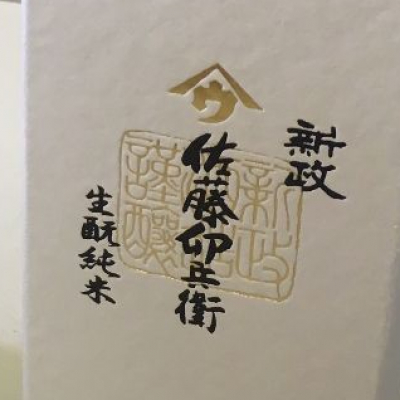 ウ
新政
佐藤卯兵衛
生酛純米
謹醸新政